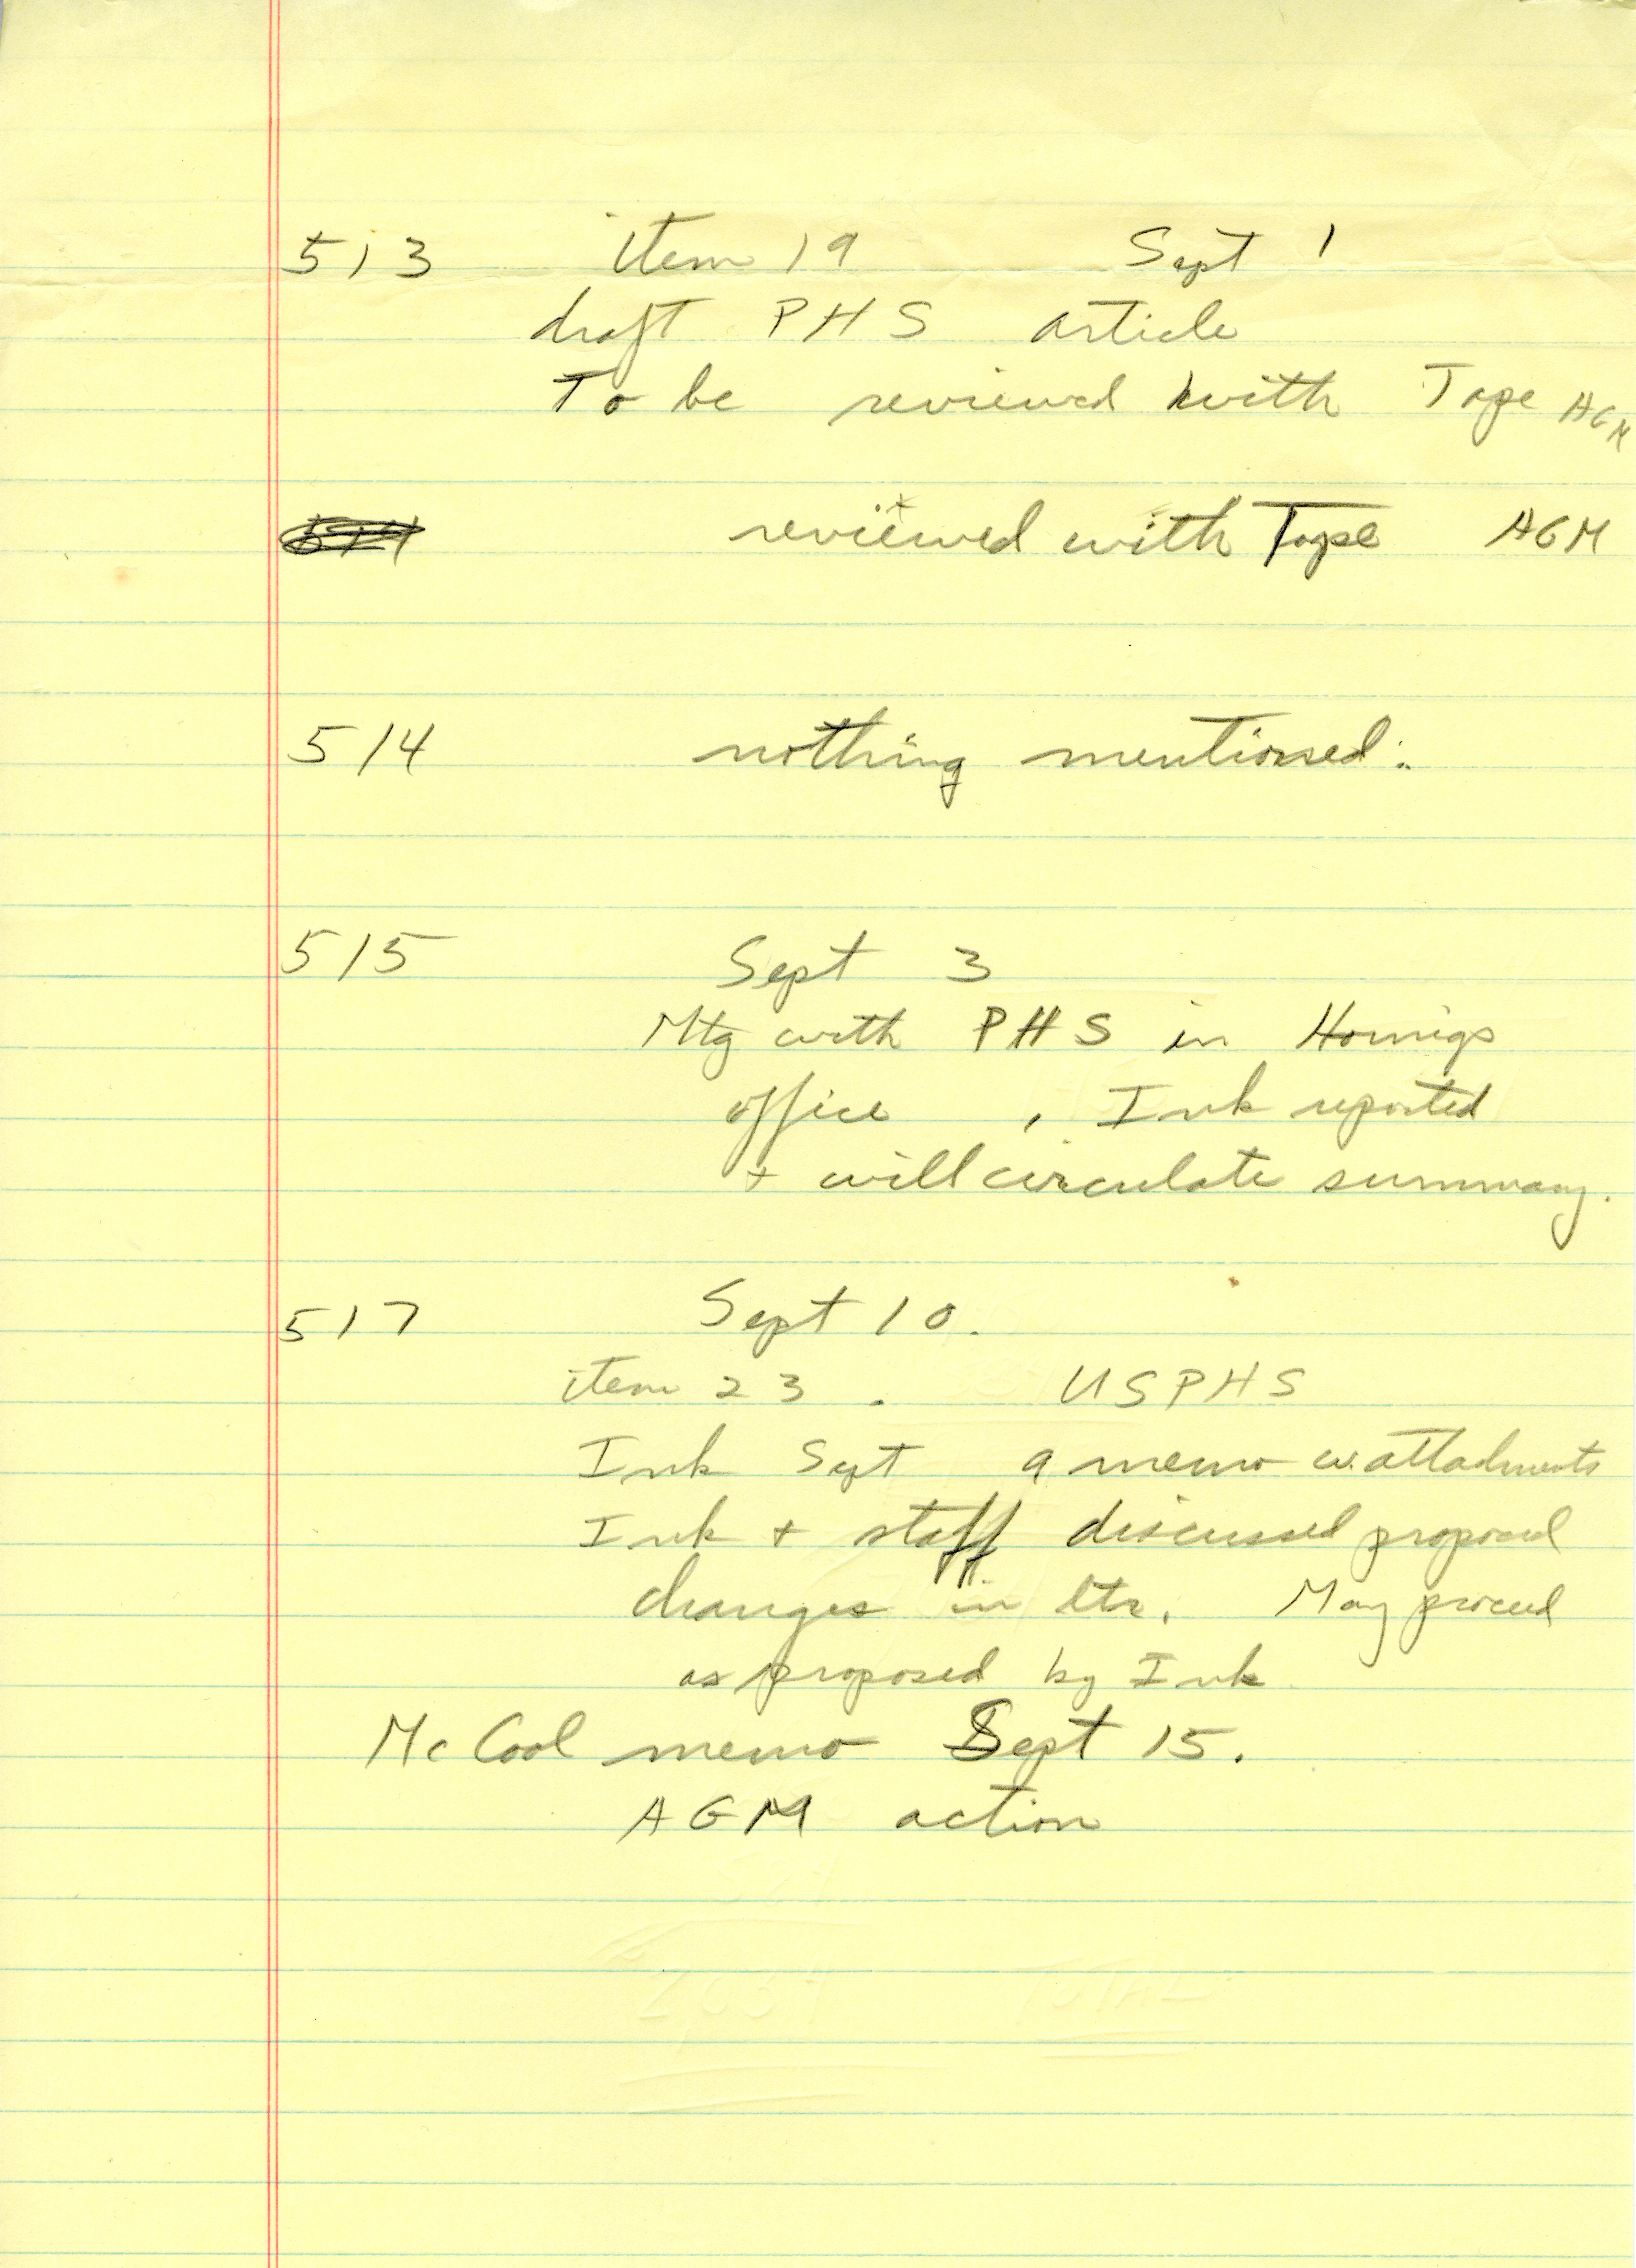 513 item 19 Sept 1
draft PHS article
To be reviewed with Tape AGM
reviewed with Tape AGM
514 nothing mentioned.
515 Sept 3
Mtg with PHS in Hornigs
office, Ink reported
+ will circulate summary.
517 Sept 10.
item 23. USPHS
Ink Sept 9 memo w. attachments
Ink + staff discussed proposed
changes in ltr. May proceed
as proposed by Ink
McCool memo Sept 15.
AGM action